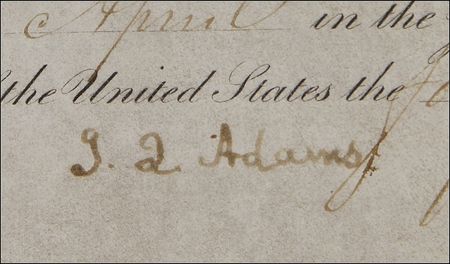 April in the
the United States the
J. Q. Adams